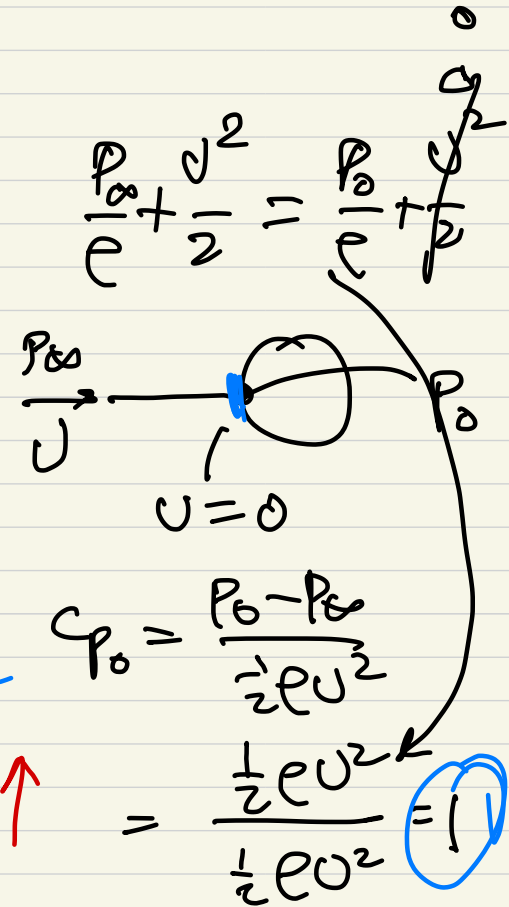 0
P∞/ρ + U²/2 = P₀/ρ + U²/2
P∞
U
P₀
U = 0
Cp₀ = (P₀ - P∞) / (½ρU²)
= (½ρU²) / (½ρU²) = 1